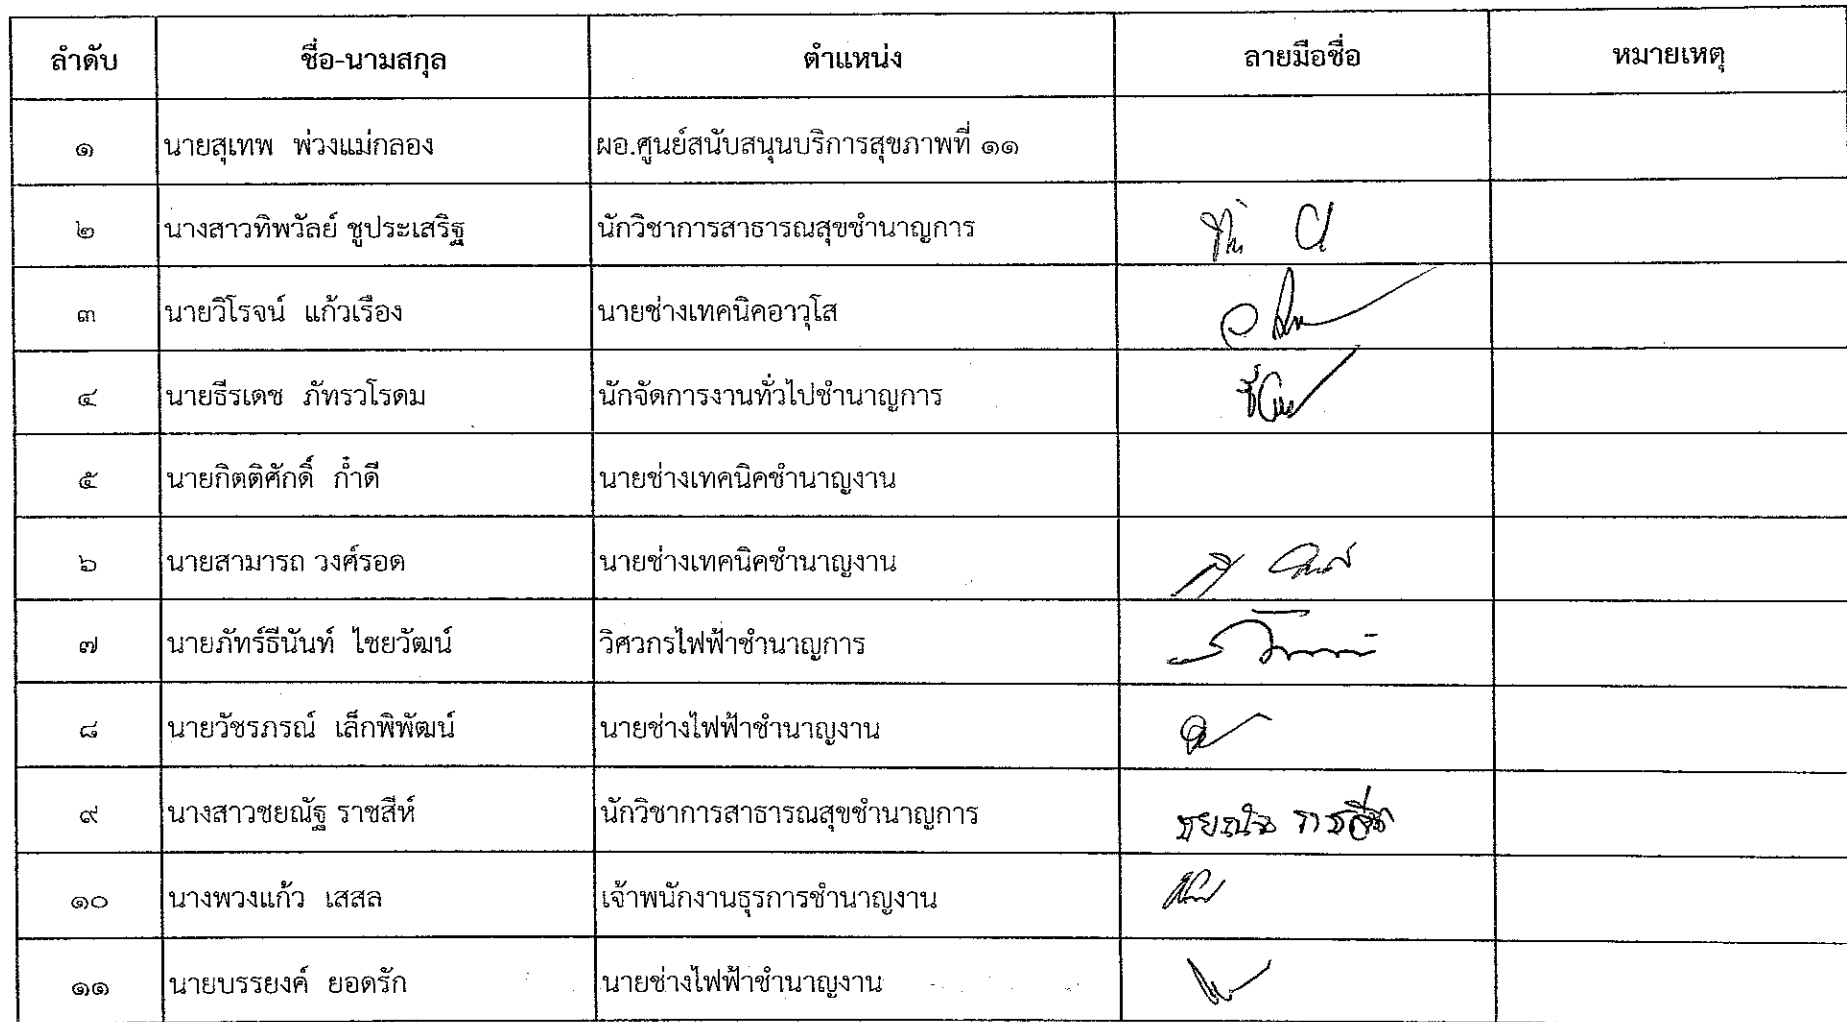 ลำดับ ชื่อ-นามสกุล ตำแหน่ง ลายมือชื่อ หมายเหตุ
๑ นายสุเทพ พ่วงแม่กลอง ผอ.ศูนย์สนับสนุนบริการสุขภาพที่ ๑๑
๒ นางสาวทิพวัลย์ ชูประเสริฐ นักวิชาการสาธารณสุขชำนาญการ
๓ นายวิโรจน์ แก้วเรือง นายช่างเทคนิคอาวุโส
๔ นายธีรเดช ภัทรวโรดม นักจัดการงานทั่วไปชำนาญการ
๕ นายกิตติศักดิ์ ก๋ำดี นายช่างเทคนิคชำนาญงาน
๖ นายสามารถ วงศ์รอด นายช่างเทคนิคชำนาญงาน
๗ นายภัทร์ธีนันท์ ไชยวัฒน์ วิศวกรไฟฟ้าชำนาญการ
๘ นายวัชรภรณ์ เล็กพิพัฒน์ นายช่างไฟฟ้าชำนาญงาน
๙ นางสาวชยณัฐ ราชสีห์ นักวิชาการสาธารณสุขชำนาญการ ชยณัฐ ราชสีห์
๑๐ นางพวงแก้ว เสสล เจ้าพนักงานธุรการชำนาญงาน
๑๑ นายบรรยงค์ ยอดรัก นายช่างไฟฟ้าชำนาญงาน